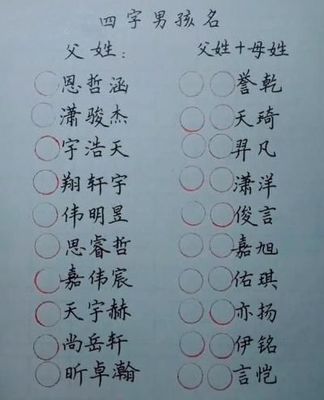 四字男孩名
父姓：
恩哲涵
潇骏杰
宇浩天
翔轩宇
伟明昱
思睿哲
嘉伟宸
天宇赫
尚岳轩
昕卓瀚
父姓+母姓
誉乾
天琦
羿凡
潇洋
俊言
嘉旭
佑琪
亦扬
伊铭
言恺